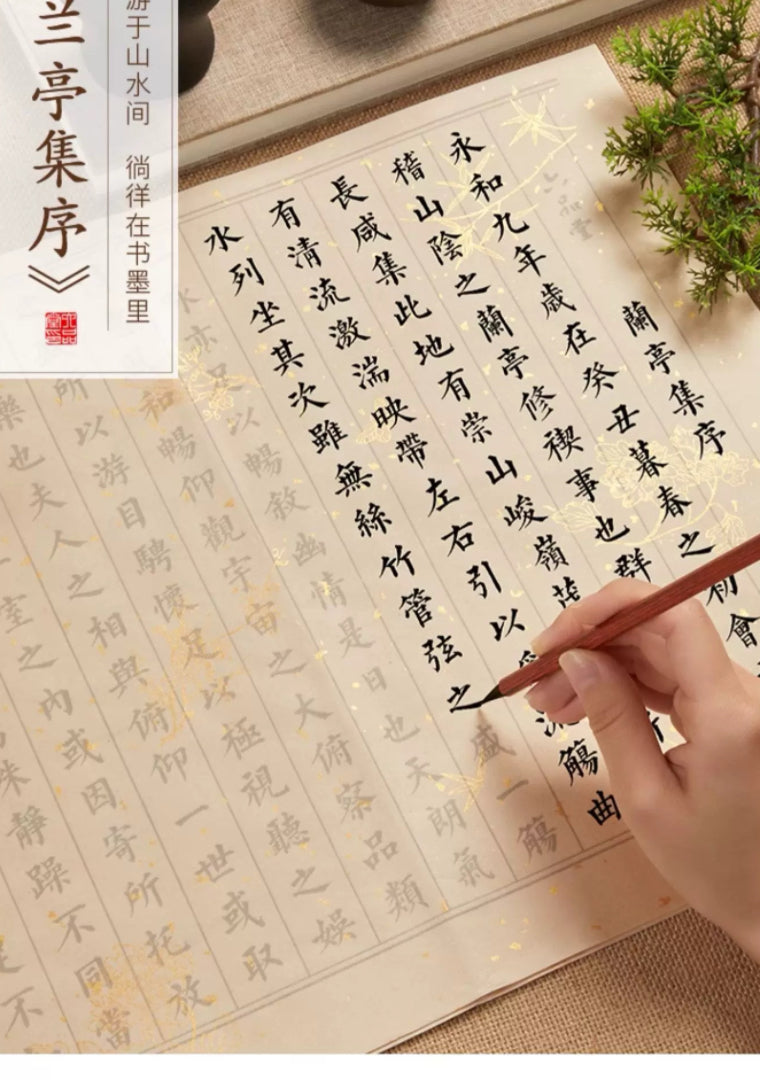 兰亭集序》
游于山水间 徜徉在书墨里
六品堂印
六品堂
蘭亭集序
永和九年歲在癸丑暮春之初會
稽山陰之蘭亭修禊事也群
長咸集此地有崇山峻嶺茂
有清流激湍映帶左右引以流觴曲
水列坐其次雖無絲竹管弦之盛一觴
亦足以暢敘幽情是日也天朗氣
和暢仰觀宇宙之大俯察品類
所以游目騁懷足以極視聽之娛
樂也夫人之相與俯仰一世或取
室之內或因寄所托放
殊靜躁不同當
不